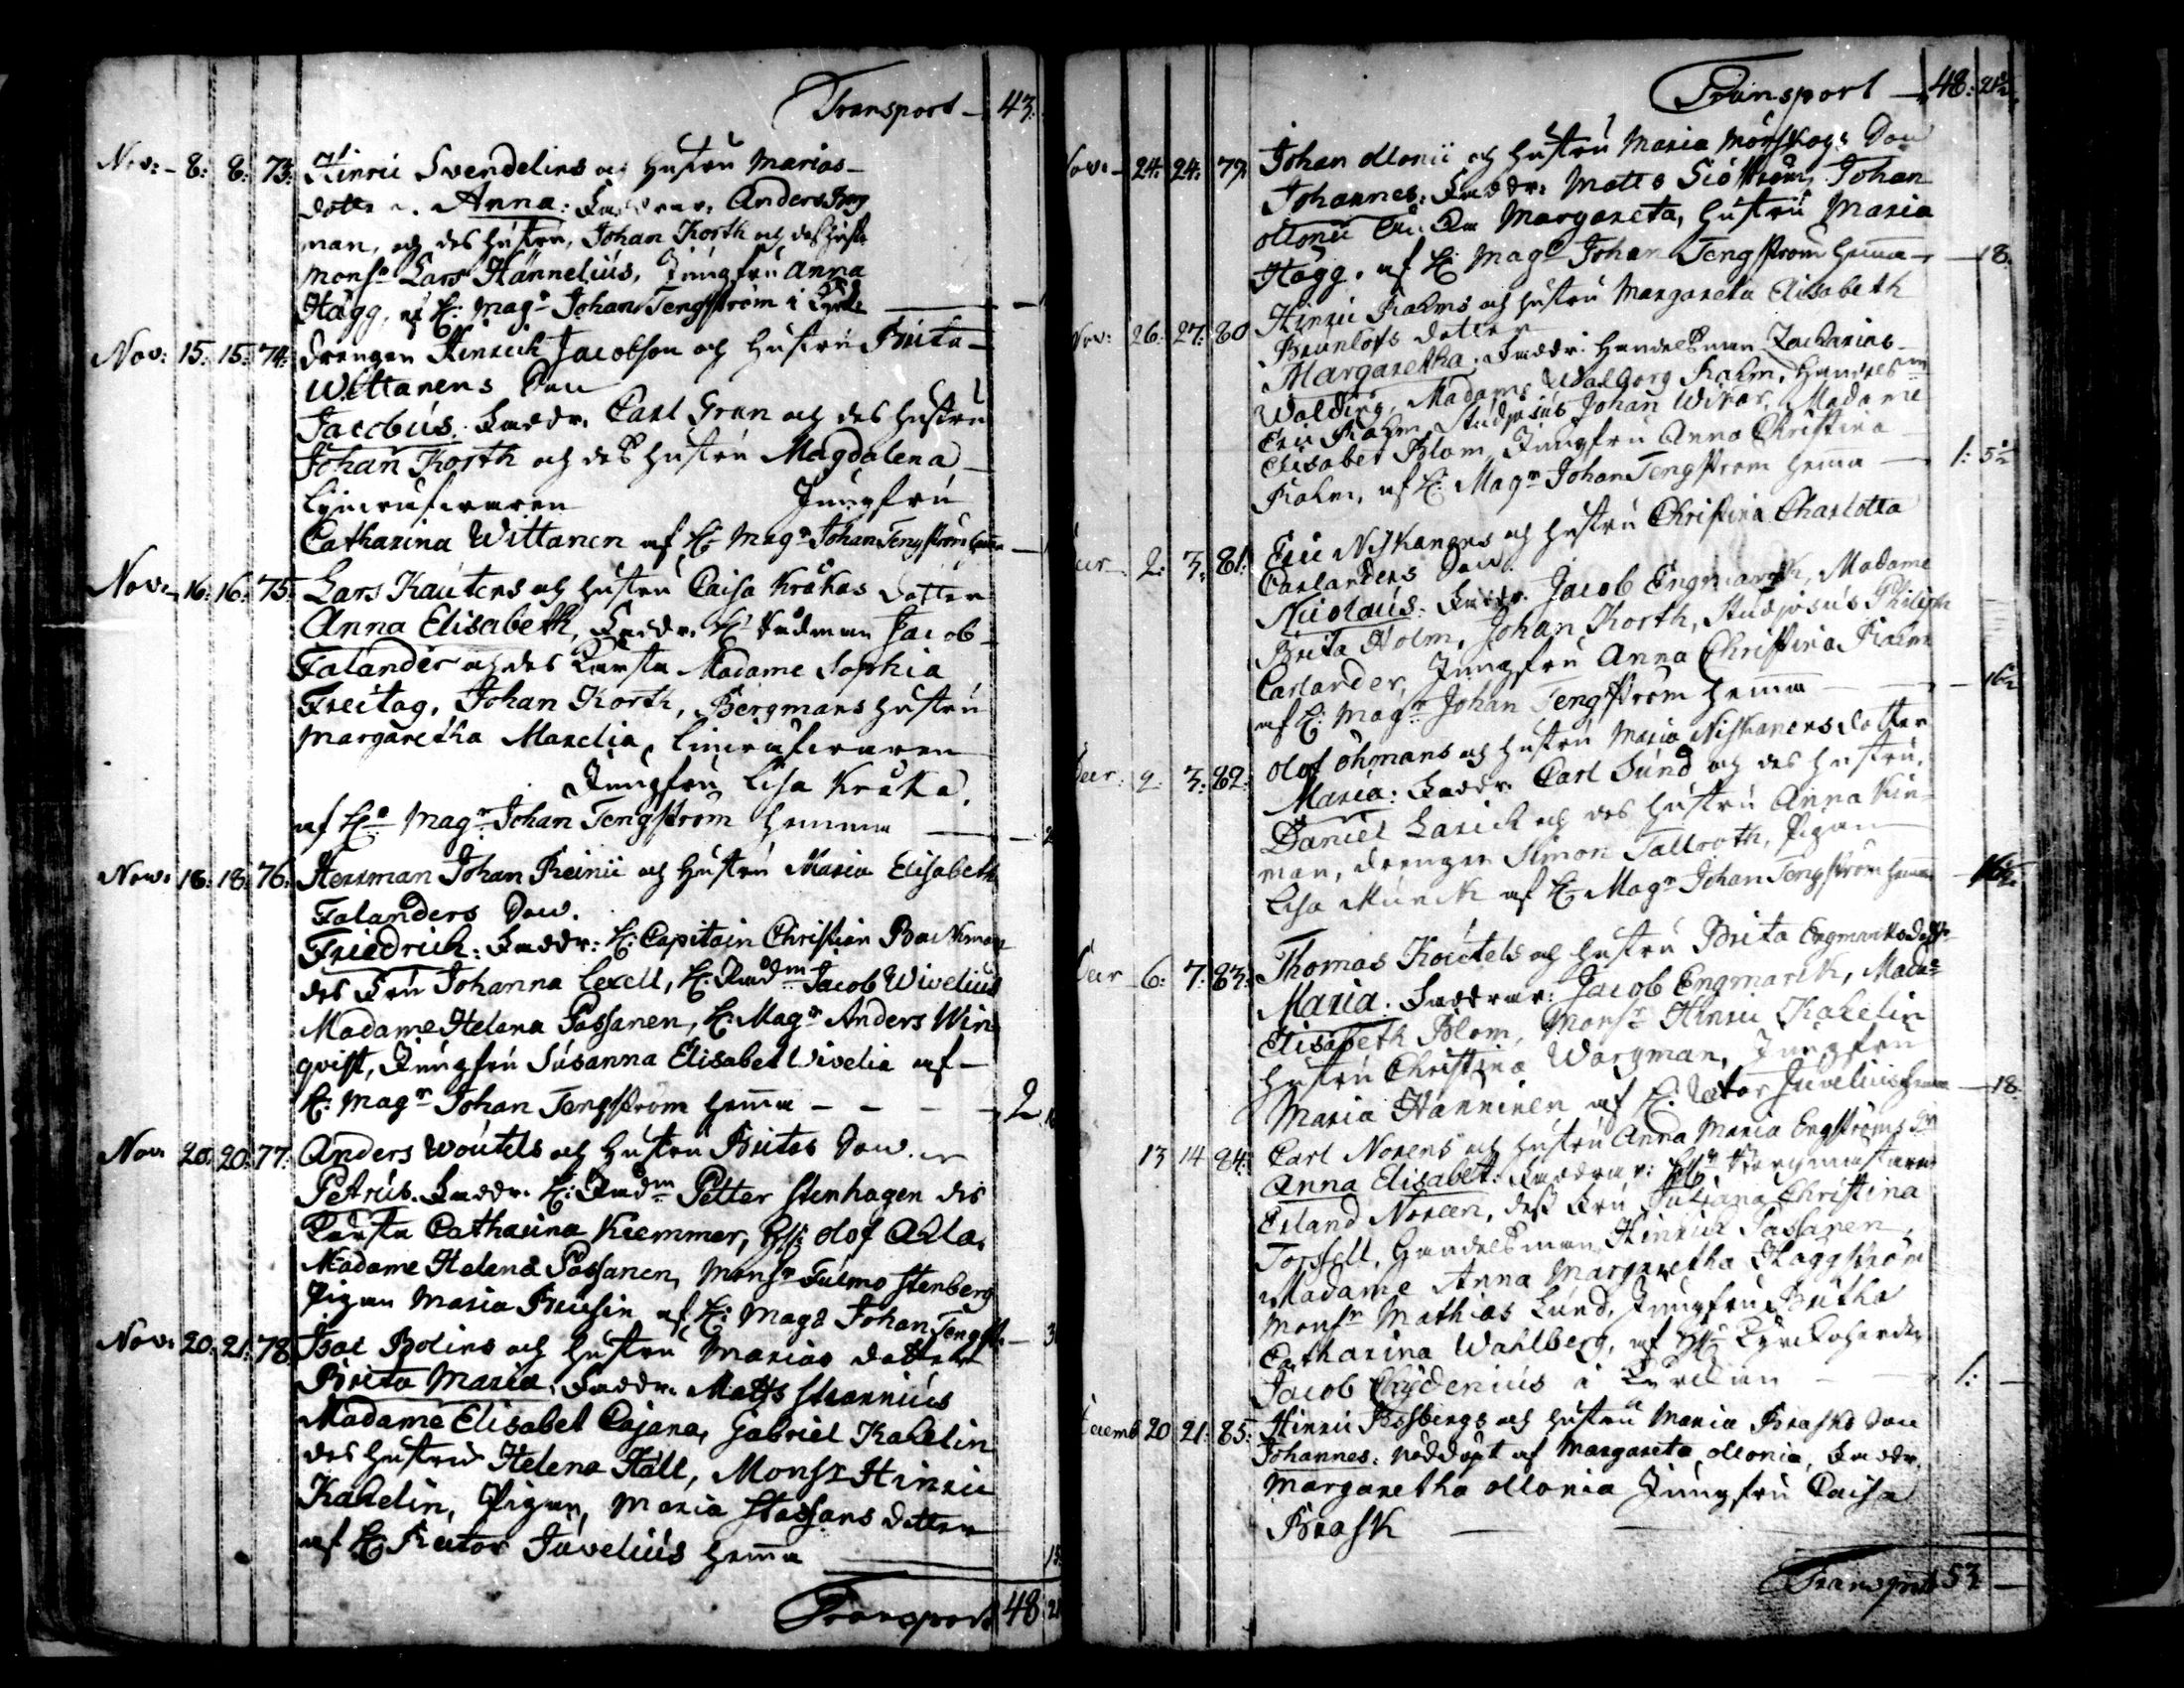 Transport — 43:
Nov: - 8: 8: 73: Hinric Svendelins och Hustru Marias
dotter. Anna: Faddrar, Anders Berg
man, och des Hustru, Johan Korth och des Hustr
Monsr Lars Hannelius, Jungfru Anna
Hägg, af H: Magr Johan Tengström i Kyrk
Nov: 15: 15: 74: drengen Hinrich Jacobson och Hustru Brita
Wittanens Son
Jacobus. Faddr. Carl Gran och des Hustru
Johan Korth och des Hustru Magdalena
Jungfru
Catharina Wittanen af H: Magr Johan Tengström hema
Nov. 16: 16: 75: Lars Kautens och Hustru Caisa Kråkas dotter
Anna Elisabeth, Faddr. H: Rådman Jacob
Falander och des Kärsta Madame Sophia
Freitag, Johan Korth, Bergmans Hustru
Margaretha Marelia,
Jungfru Lisa Kråka.
af Hr Magr Johan Tengström hemma
Nov: 18: 18: 76: Herrman Johan Reinii och Hustru Maria Elisabeth
Falanders Son.
Friedrich: Faddr: H: Capitain Christian Backman
des Fru Johanna Lexell, H: Rådm Jacob Wivelius
Madame Helena Passanen, H: Magr Anders Win
qvist, Jungfru Susanna Elisabet Wivelia af
H: Magr Johan Tengström hema - - - 2
Nov. 20: 20: 77: Anders Woutels och Hustru Britas Son
Petrus. Faddr. H: Rådm Petter Stenhagen des
Kärsta Catharina Kremmer, Olof Ahla,
Madame Helena Passanen, Monsr Stenberg
Pigan Maria af H: Magr Johan Tengstr
Nov. 20: 21: 78 Isac Bolins och Hustru Marias dotter
Brita Maria. Faddr. Matts
Madame Elisabet Cajana, Gabriel Kahelin
des Hustru Helena Häll, Monsr Hinric
Kahelin, Pigan, Maria dotter
af H: Rector Juvelius hema
Transport 48
Transport — 48: 21½
Nov. - 24: 24: 79 Johan Ollonii och Hustru Maria Mörskogs Son
Johannes. Faddr: Matts Siöström, Johan
Ollonii Margareta, Hustru Maria
Hägg. af H: Magr Johan Tengström hema — 18.
Nov: 26: 27: 80 Hinric Kahms och Hustru Margareta Elisabeth
dotter
Margaretha. Faddr: Handelsman Zacharias
Madame Walborg Kahm, Handelsm
Eric Kahm Studiosus Johan Wikar, Madame
Elisabet Blom Jungfru Anna Christina
Kahm, af H: Magr Johan Tengström hema — 1: 5½
2: 3: 81: Eric Niskanens och Hustru Christina Charlotta
Carlanders Son.
Nicolaus. Faddr. Jacob Engmarck, Madame
Brita Holm, Johan Korth, Studiosus Philip
Carlander, Jungfru Anna Christina Kahm
af H: Magr Johan Tengström hemma — 16½
2: 3: 82: Olof Öhmans och Hustru Maria Niskanens dotter
Maria: Faddr. Carl Sund och des Hustru,
Daniel Larick och des Hustru Anna
man, drengen Simon Tallroth, Pigan
Lisa Munck af H: Magr Johan Tengström hema
6: 7: 83: Thomas Koutels och Hustru Brita Engmarks dotter
Maria. Faddrar: Jacob Engmarck, Made
Elisabeth Blom, Monsr Hinric Kahelin
Hustru Christina Wargman, Jungfru
Maria Hänninen af H: Rector Juvelius hema — 18.
13 14 84: Carl Norens och Hustru Anna Maria Engströms
Anna Elisabet: Faddrar:
Erland Noreen, dess Fru Juliana Christina
Torssell, Handelsman Hinrick Passanen,
Madame Anna Margaretha Häggström
Monsr Mathias Lund, Jungfru Britha
Catharina Wahlberg, af Kyrckoherden
Jacob Chydenius i Kyrckan — 1: —
Decemb 20 21: 85: Hinric Forsbergs och Hustru Maria Brasks Son
Johannes: nöddöpt af Margareta Ollonia, Faddr.
Margaretha Ollonia Jungfru Caisa
Brask
Transport 53 —